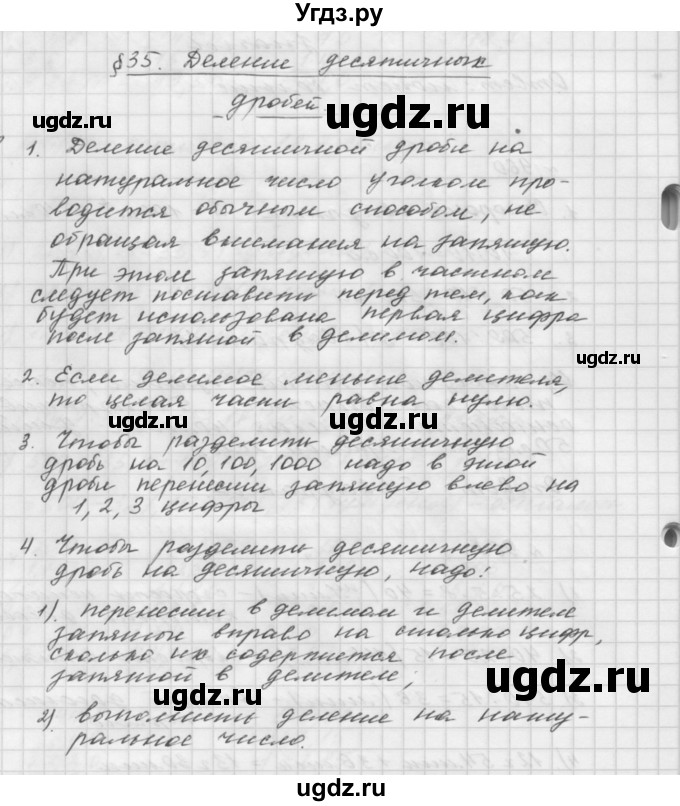 Угдз.ру
§35. Деление десятичных
дробей
1. Деление десятичной дроби на
натуральное число уголком про-
водится обычным способом, не
обращая внимания на запятую.
При этом запятую в частном
следует поставить перед тем, как
будет использована первая цифра
после запятой в делимом.
2. Если делимое меньше делителя,
то целая часть равна нулю.
3. Чтобы разделить десятичную
дробь на 10, 100, 1000 надо в этой
дроби перенести запятую влево на
1, 2, 3 цифры
4. Чтобы разделить десятичную
дробь на десятичную, надо:
1) перенести в делимом и делителе
запятые вправо на столько цифр,
сколько их содержится после
запятой в делителе;
2) выполнить деление на нату-
ральное число.
ugdz.ru
ugdz.ru
ugdz.ru
ugdz.ru
ugdz.ru
ugdz.ru
ugdz.ru
ugdz.ru
ugdz.ru